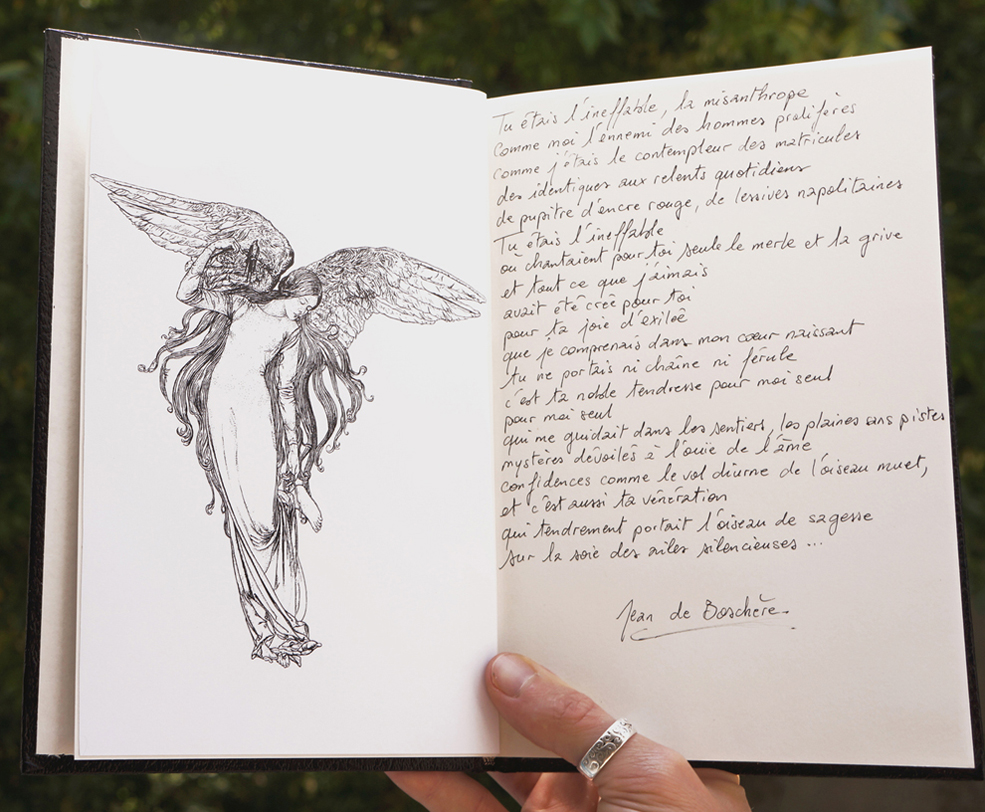 Tu étais l'ineffable, la misanthrope
comme moi l'ennemi des hommes prolifères
comme j'étais le contempleur des matricules
des identiques aux relents quotidiens
de pupitre d'encre rouge, de lessives napolitaines
Tu étais l'ineffable
où chantaient pour toi seule le merle et la grive
et tout ce que j'aimais
avait été créé pour toi
pour ta joie d'exilée
que je comprenais dans mon cœur naissant
tu ne portais ni chaîne ni férule
c'est ta noble tendresse pour moi seul
pour moi seul
qui me guidait dans les sentiers, les plaines sans pistes
mystères dévoilés à l'ouïe de l'âme
confidences comme le vol diurne de l'oiseau muet,
et c'est aussi ta vénération
qui tendrement portait l'oiseau de sagesse
sur la soie des ailes silencieuses ...
Jean de Boschère